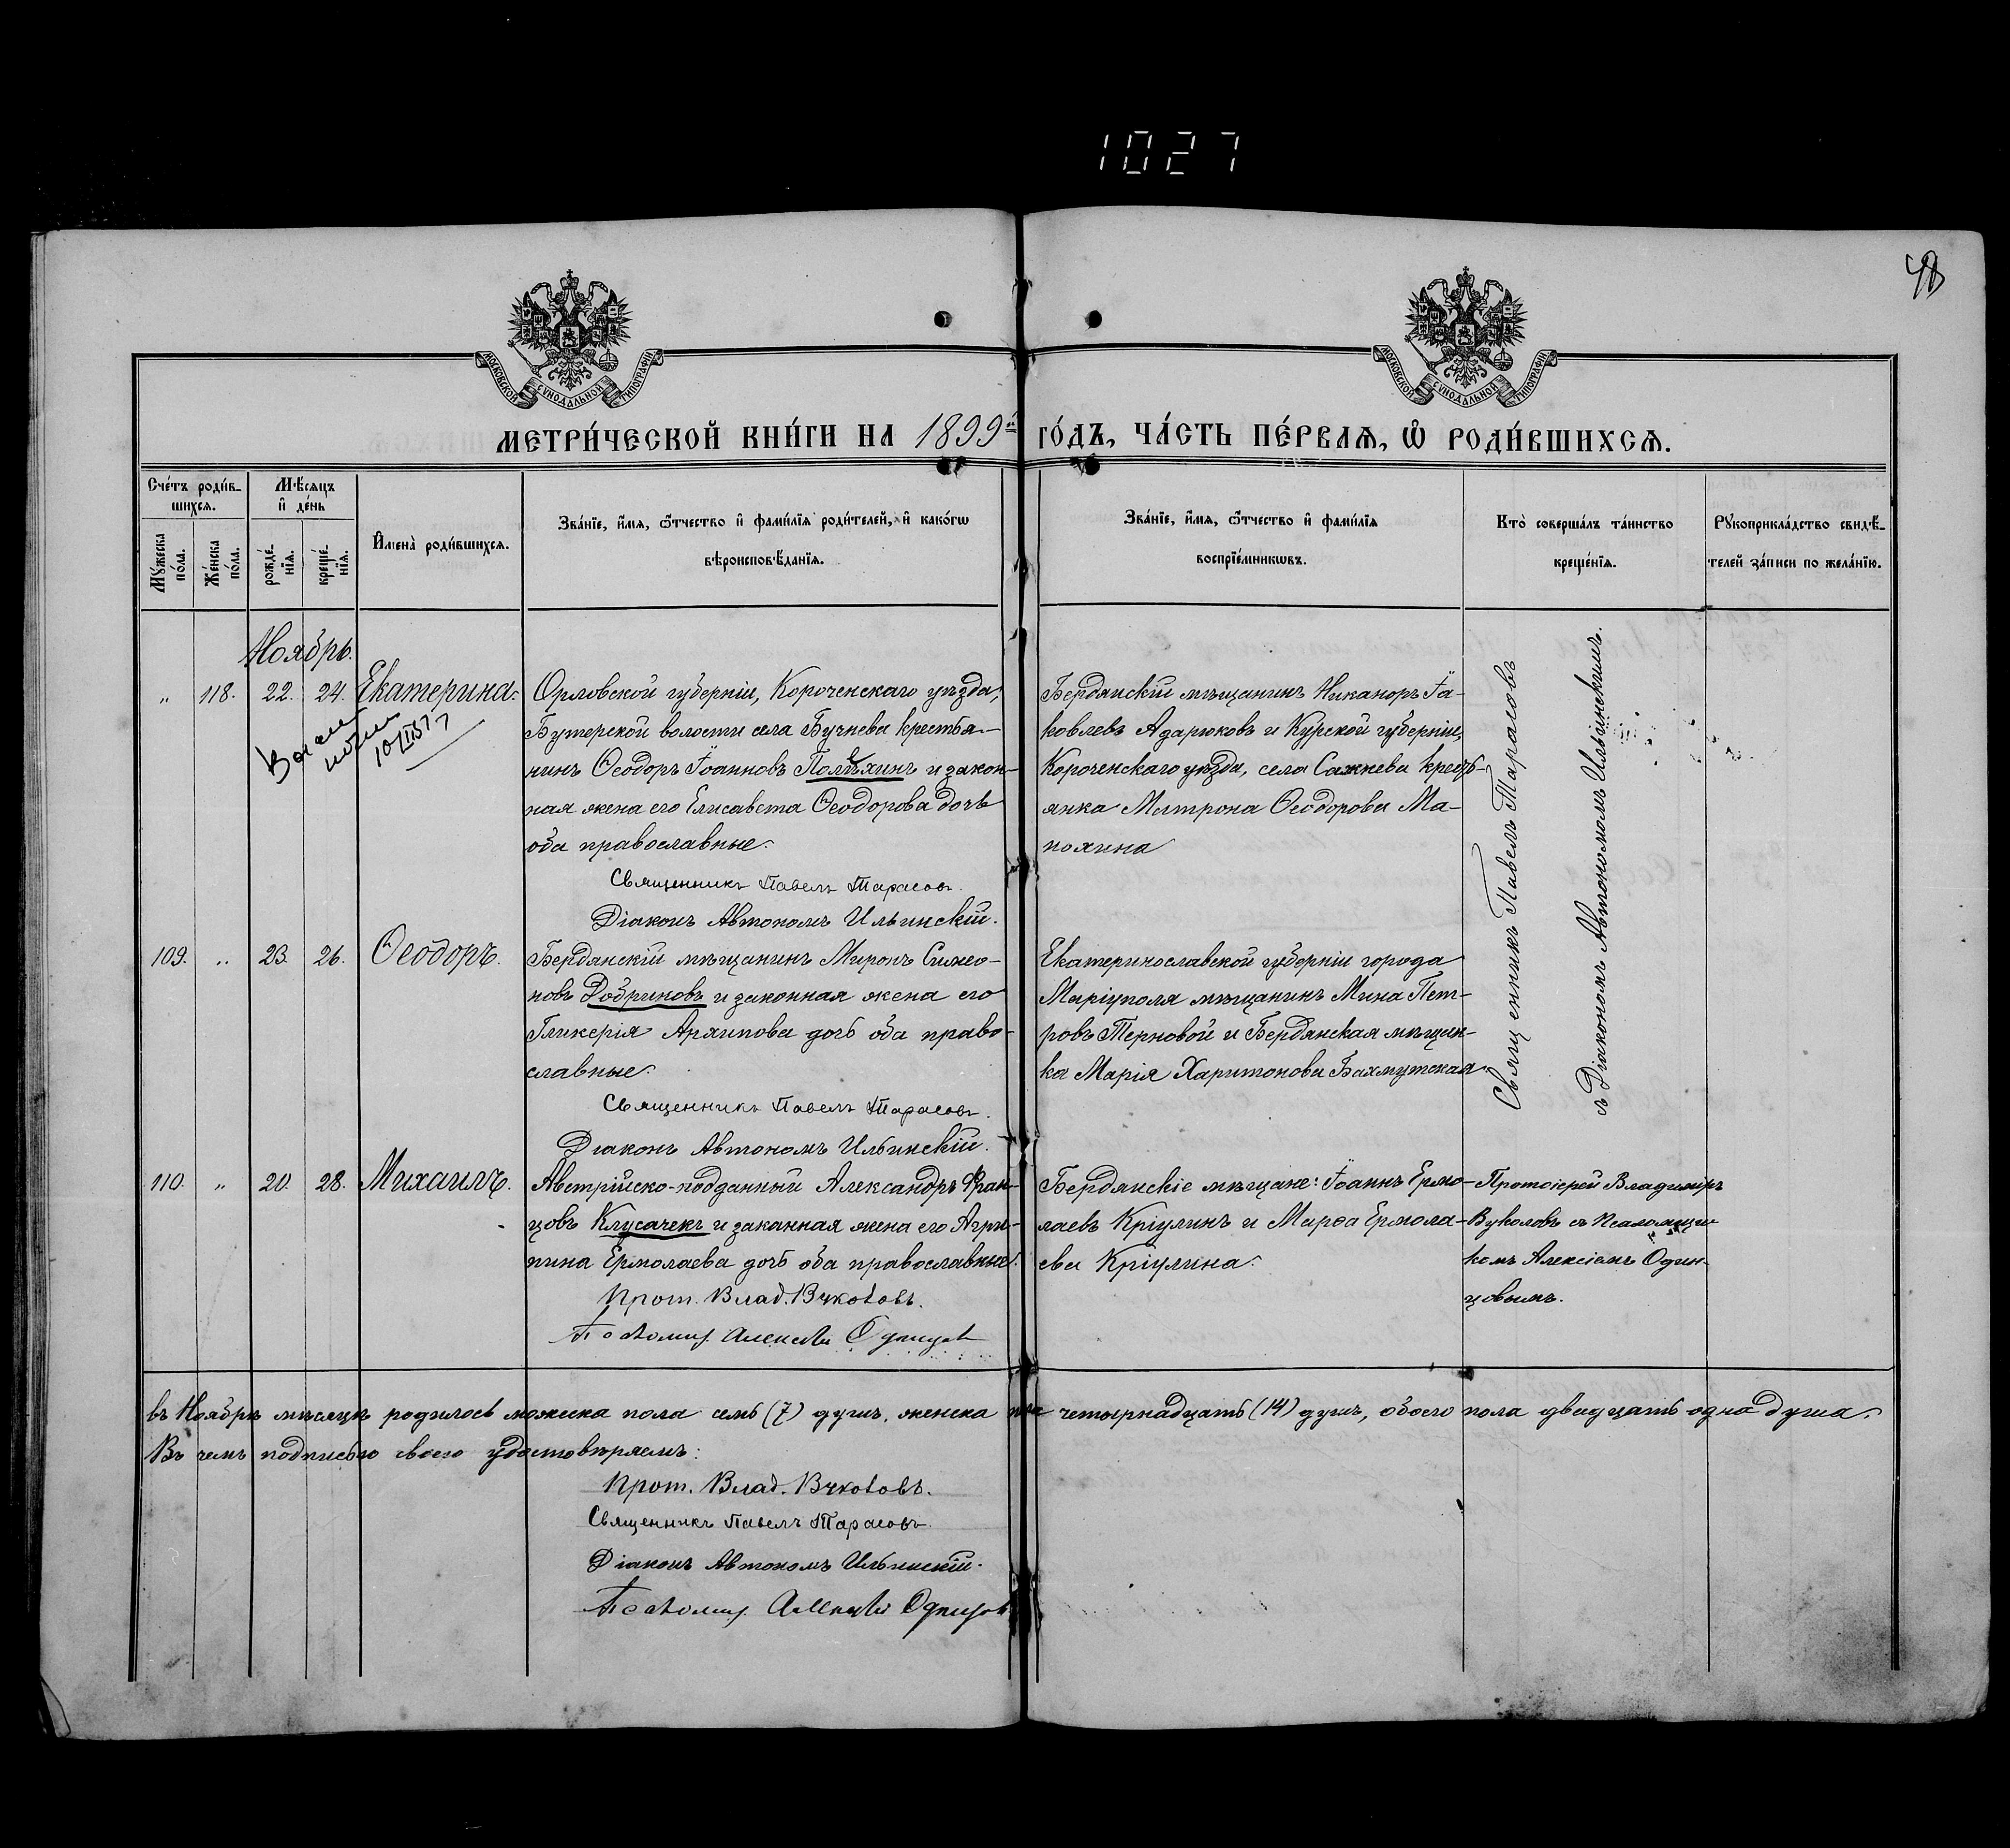 1027
МОСКОВСКОЙ СѴНОДАЛЬНОЙ ТИПОГРАФІИ
МОСКОВСКОЙ СѴНОДАЛЬНОЙ ТИПОГРАФІИ
МЕТРИ́ЧЕСКОЙ КНИ́ГИ НА 1899й ГО́ДЪ, ЧА́СТЬ ПЕ́РВАѦ, Ѡ҆ РОДИ́ВШИХСѦ.
Сче́тъ роди́в-
шихсѧ.
Мꙋ́жеска по́ла.
Же́нска по́ла.
Мѣ́сѧцъ и҆ де́нь
рожде́-нїѧ.
креще́-нїѧ.
И҆мена̀ роди́вшихсѧ.
Зва́нїе, и҆́мѧ, ѻ҆́тчество и҆ фами́лїѧ роди́телей, и҆ како́гѡ
вѣроисповѣ́данїѧ.
Зва́нїе, и҆́мѧ, ѻ҆́тчество и҆ фами́лїѧ
воспрїе́мникѡвъ.
Кто̀ соверша́лъ та́инство
креще́нїѧ.
Рꙋкоприкла́дство свидѣ́-
телей за́писи по жела́нїю.
Ноябрь.
„ 118. 22. 24. Екатерина.
10/II 51 г
Орловской губерніи, Короченскаго уѣзда,
Бутерской волости села Бучнева крестья-
нинъ Ѳеодоръ Іоанновъ Полѣхинъ и закон-
ная жена его Елисавета Ѳеодорова дочь
оба православные.
Священникъ Павелъ Тарасовъ.
Діаконъ Автономъ Ильинскій.
Бердянскій мѣщанинъ Никаноръ Іа-
ковлевъ Адарюковъ и Курской губерніи,
Короченскаго уѣзда, села Сажнева кресть-
янка Матрона Ѳеодорова Ма-
нохина
Священникъ Павелъ Тарасовъ
съ Діакономъ Автономомъ Ильинскимъ.
109. „ 23. 26. Ѳеодоръ.
Бердянскій мѣщанинъ Миронъ Симео-
новъ Добриновъ и законная жена его
Гликерія Архипова дочь оба право-
славные.
Священникъ Павелъ Тарасовъ.
Діаконъ Автономъ Ильинскій.
Екатеринославской губерніи города
Маріуполя мѣщанинъ Мина Пет-
ровъ Терновой и Бердянская мѣщан-
ка Марія Харитонова Бахмутская
110. „ 20. 28. Михаилъ.
Австрійско-подданный Александръ Фран-
цовъ Клусачекъ и законная жена его Агри-
пина Ермолаева дочь оба православные.
Прот. Влад. Вуколовъ.
Псаломщ. Алексѣй Одинцовъ
Бердянскіе мѣщане: Іоаннъ Ермо-
лаевъ Кріулинъ и Марѳа Ермола-
ева Кріулина.
Протоіерей Владиміръ
Вуколовъ съ Псаломщи-
комъ Алексіемъ Один-
цовымъ.
въ Ноябрѣ мѣсяцѣ родилось мужеска пола семь (7) душъ, женска пола четырнадцать (14) душъ, обоего пола двадцать одна душа.
Въ чемъ подписью своею удостовѣряемъ:
Прот. Влад. Вуколовъ.
Священникъ Павелъ Тарасовъ.
Діаконъ Автономъ Ильинскій.
Псаломщ. Алексѣй Одинцовъ